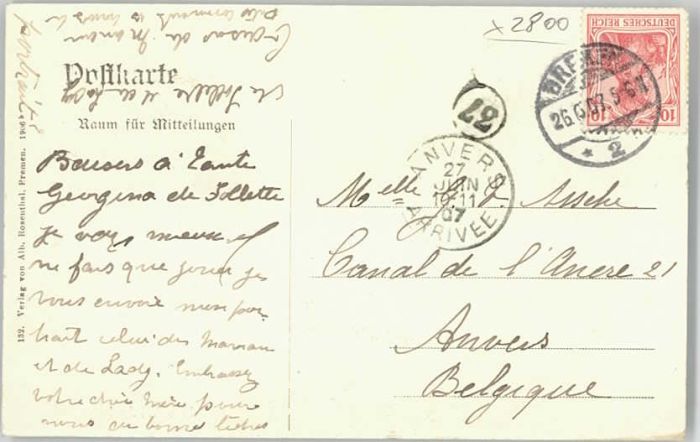 x 2800
Postkarte
Raum für Mitteilungen
Baisers à Tante
Georgina de Tollette
je vais mieux et
ne fais que jouer je
vous envoie mon por
trait celui de Maman
et de Lady. Embrassez
votre chère mère pour
nous de bonne
132. Verlag von Alb. Rosenthal, Bremen. 1906
DEUTSCHES REICH
10 10
BREMEN
26.6.07. 5-6N.
* 2
37
ANVERS
27
JUIN
10-11
07
ARRIVEE
Melle J. v. Assche
Canal de l'Ancre 21
Anvers
Belgique